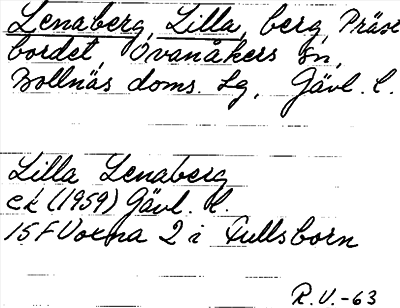 Lenaberg, Lilla, berg, Präst
bordet, Ovanåkers sn,
Bollnäs doms. Lg, Gävl. l.
Lilla Lenaberg
ek (1959) Gävl. l.
15F Voxna 2 i Fullsborn
R.V.-63